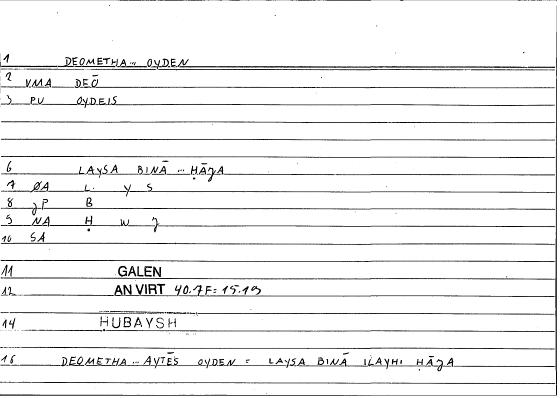 1 DEOMETHA... OYDEN
2 VMA DEŌ
3 PU OYDEIS
6 LAYSA BINĀ ... ḤĀǧA
7 ØA L y S
8 ǧP B
9 NA Ḥ W ǧ
10 SA
11 GALEN
12 AN VIRT 40.7F = 15.19
14 ḤUBAYSH
16 DEOMETHA... AYTĒS OYDEN = LAYSA BINĀ ILAYHI ḤĀǧA